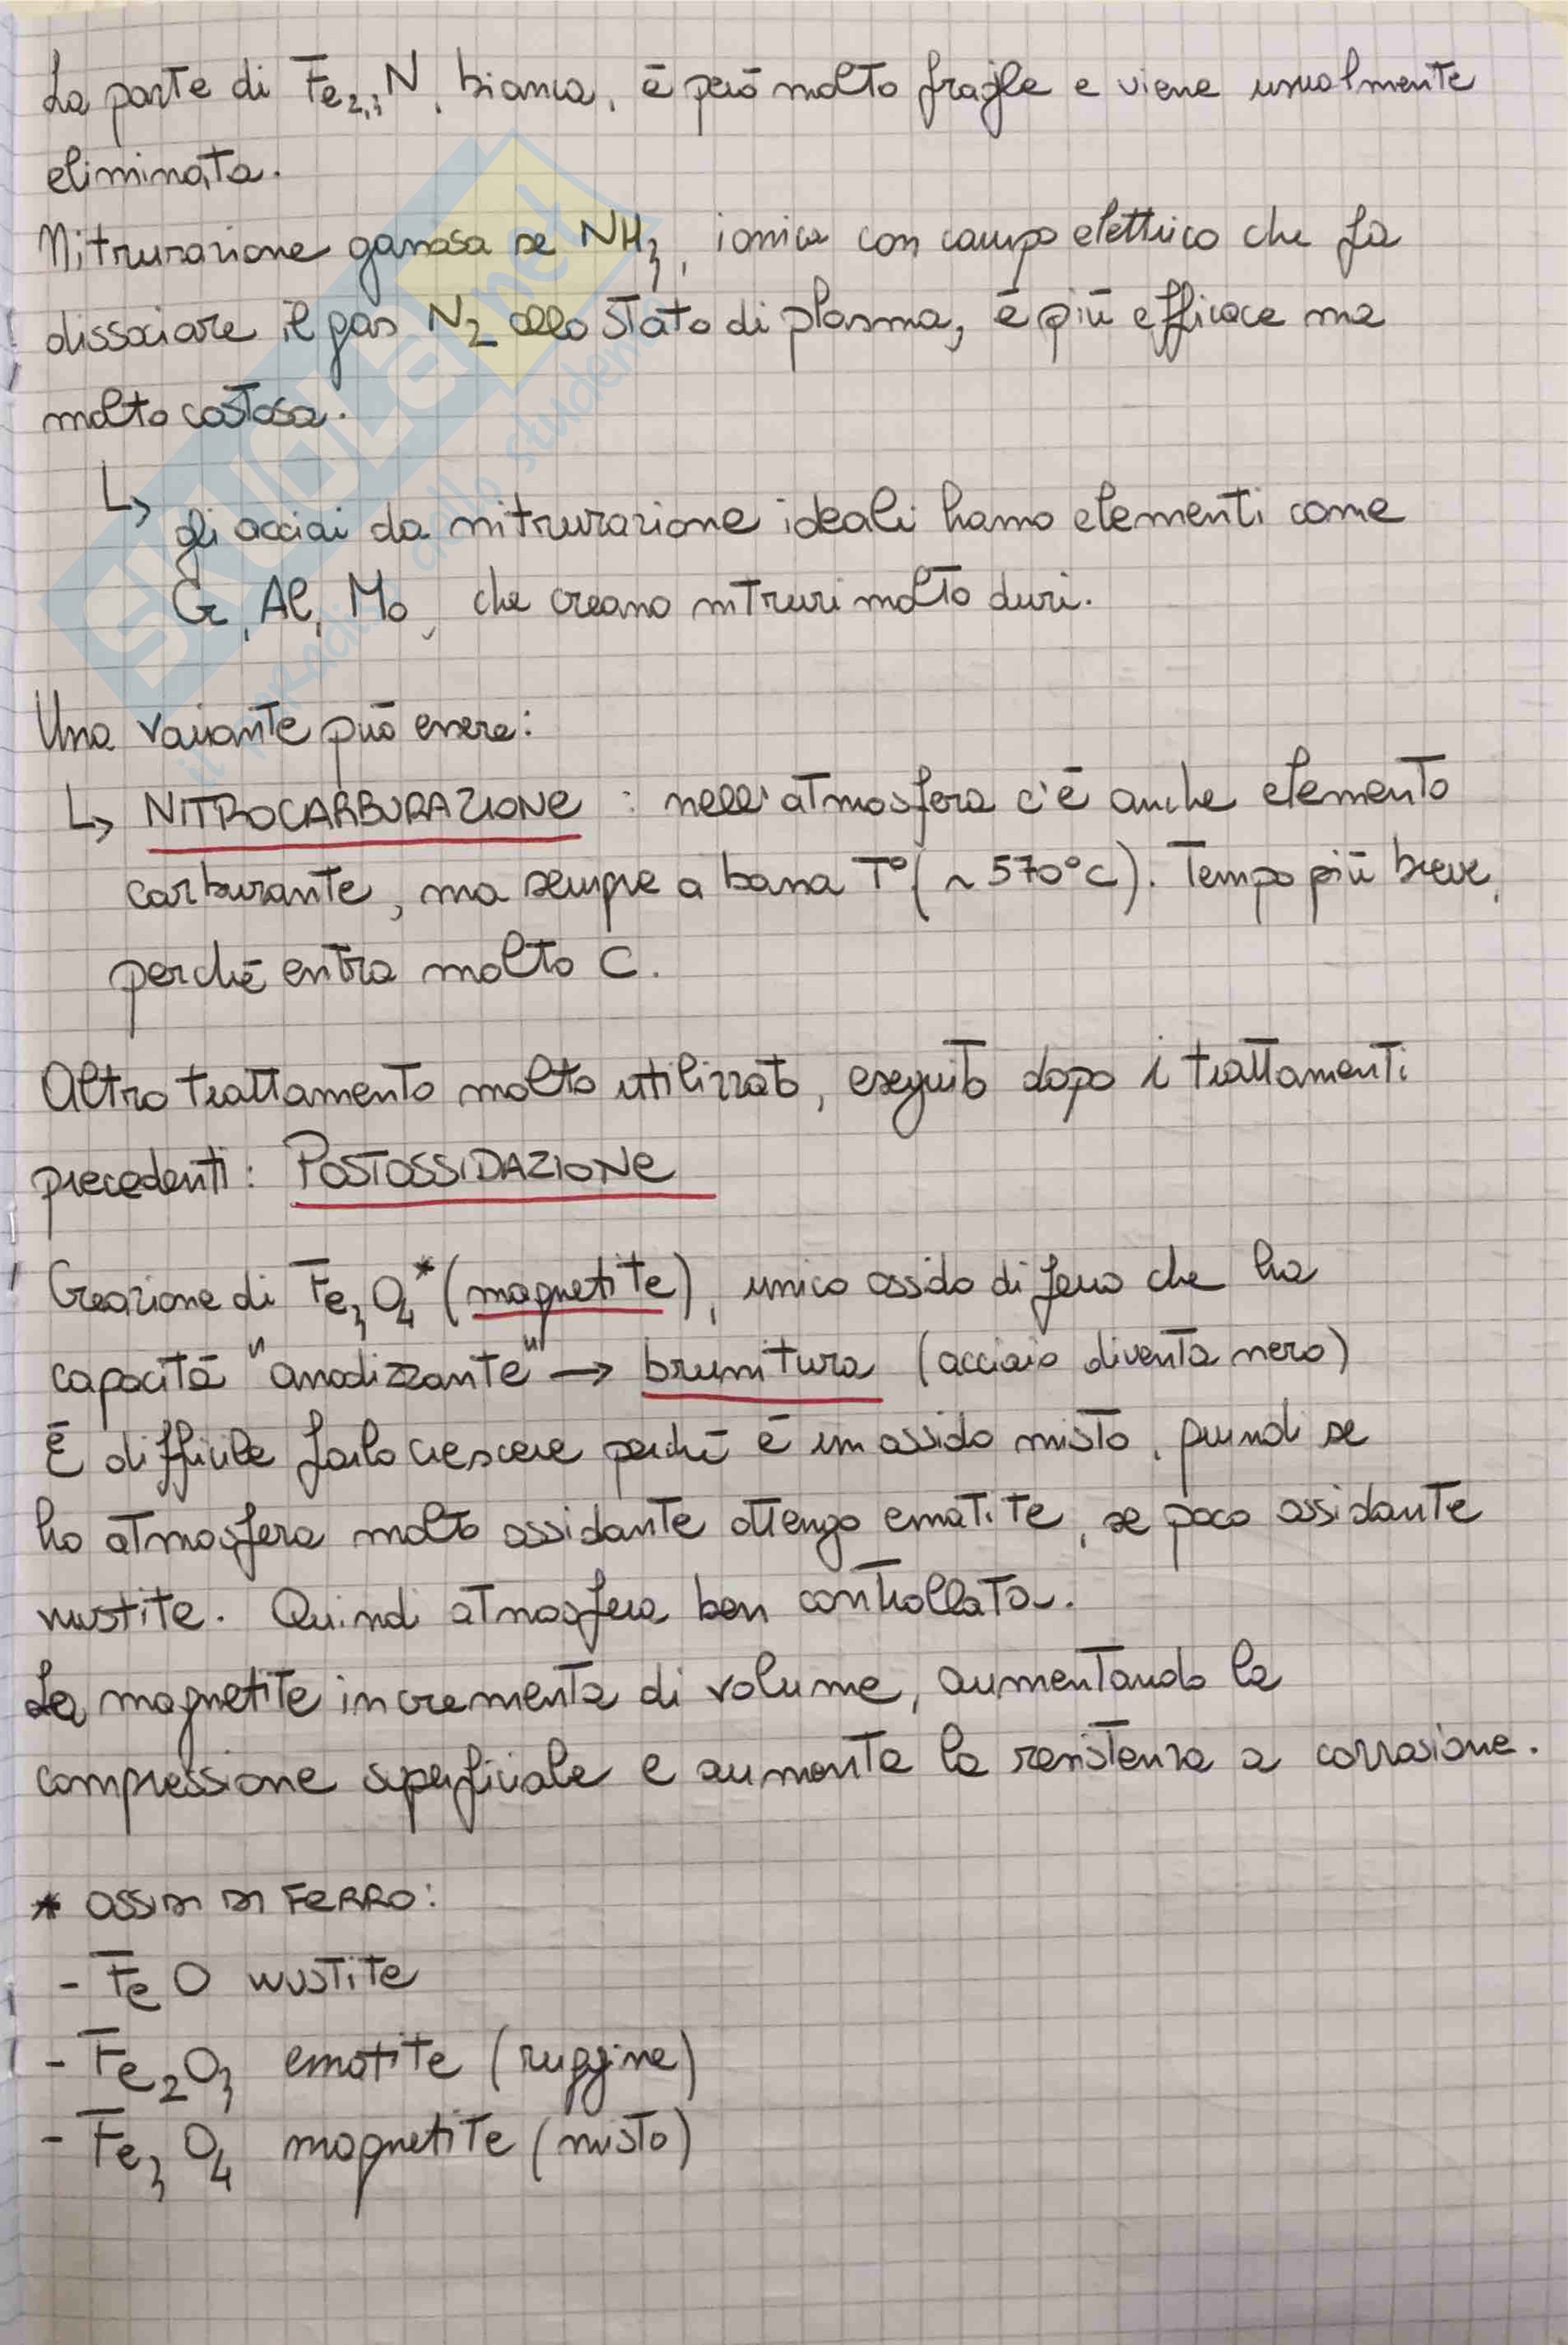 La parte di Fe2,3N, bianca, è però molto fragile e viene usualmente
eliminata.
Nitrurazione gassosa se NH3, ionica con campo elettrico che fa
dissociare il gas N2 allo stato di plasma, è più efficace ma
molto costosa.
↳ gli acciai da nitrurazione ideali hanno elementi come
Cr, Al, Mo, che creano nitruri molto duri.
Una variante può essere:
↳ NITROCARBURAZIONE : nell'atmosfera c'è anche elemento
carburante, ma sempre a bassa T° (~570°C). Tempo più breve,
perché entra molto C.
Altro trattamento molto utilizzato, eseguito dopo i trattamenti
precedenti: POSTOSSIDAZIONE
Creazione di Fe3O4* (magnetite), unico ossido di ferro che ha
capacità "anodizzante" → brunitura (acciaio diventa nero)
È difficile farlo crescere perché è un ossido misto, quindi se
ho atmosfera molto ossidante ottengo ematite, se poco ossidante
wustite. Quindi atmosfera ben controllata.
La magnetite incrementa di volume, aumentando la
compressione superficiale e aumenta la resistenza a corrosione.
* OSSIDI DI FERRO:
- FeO wustite
- Fe2O3 ematite (ruggine)
- Fe3O4 magnetite (misto)
SKUOLA.net
il paradiso dello studente